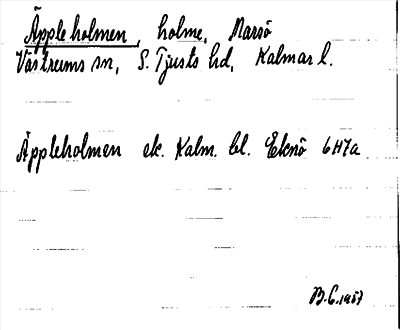 Äppleholmen, holme, Marsö
Västrums sn, S. Tjusts hd, Kalmar l.
Äppleholmen ek. Kalm. bl. Eknö 6H7a
B.C. 1957